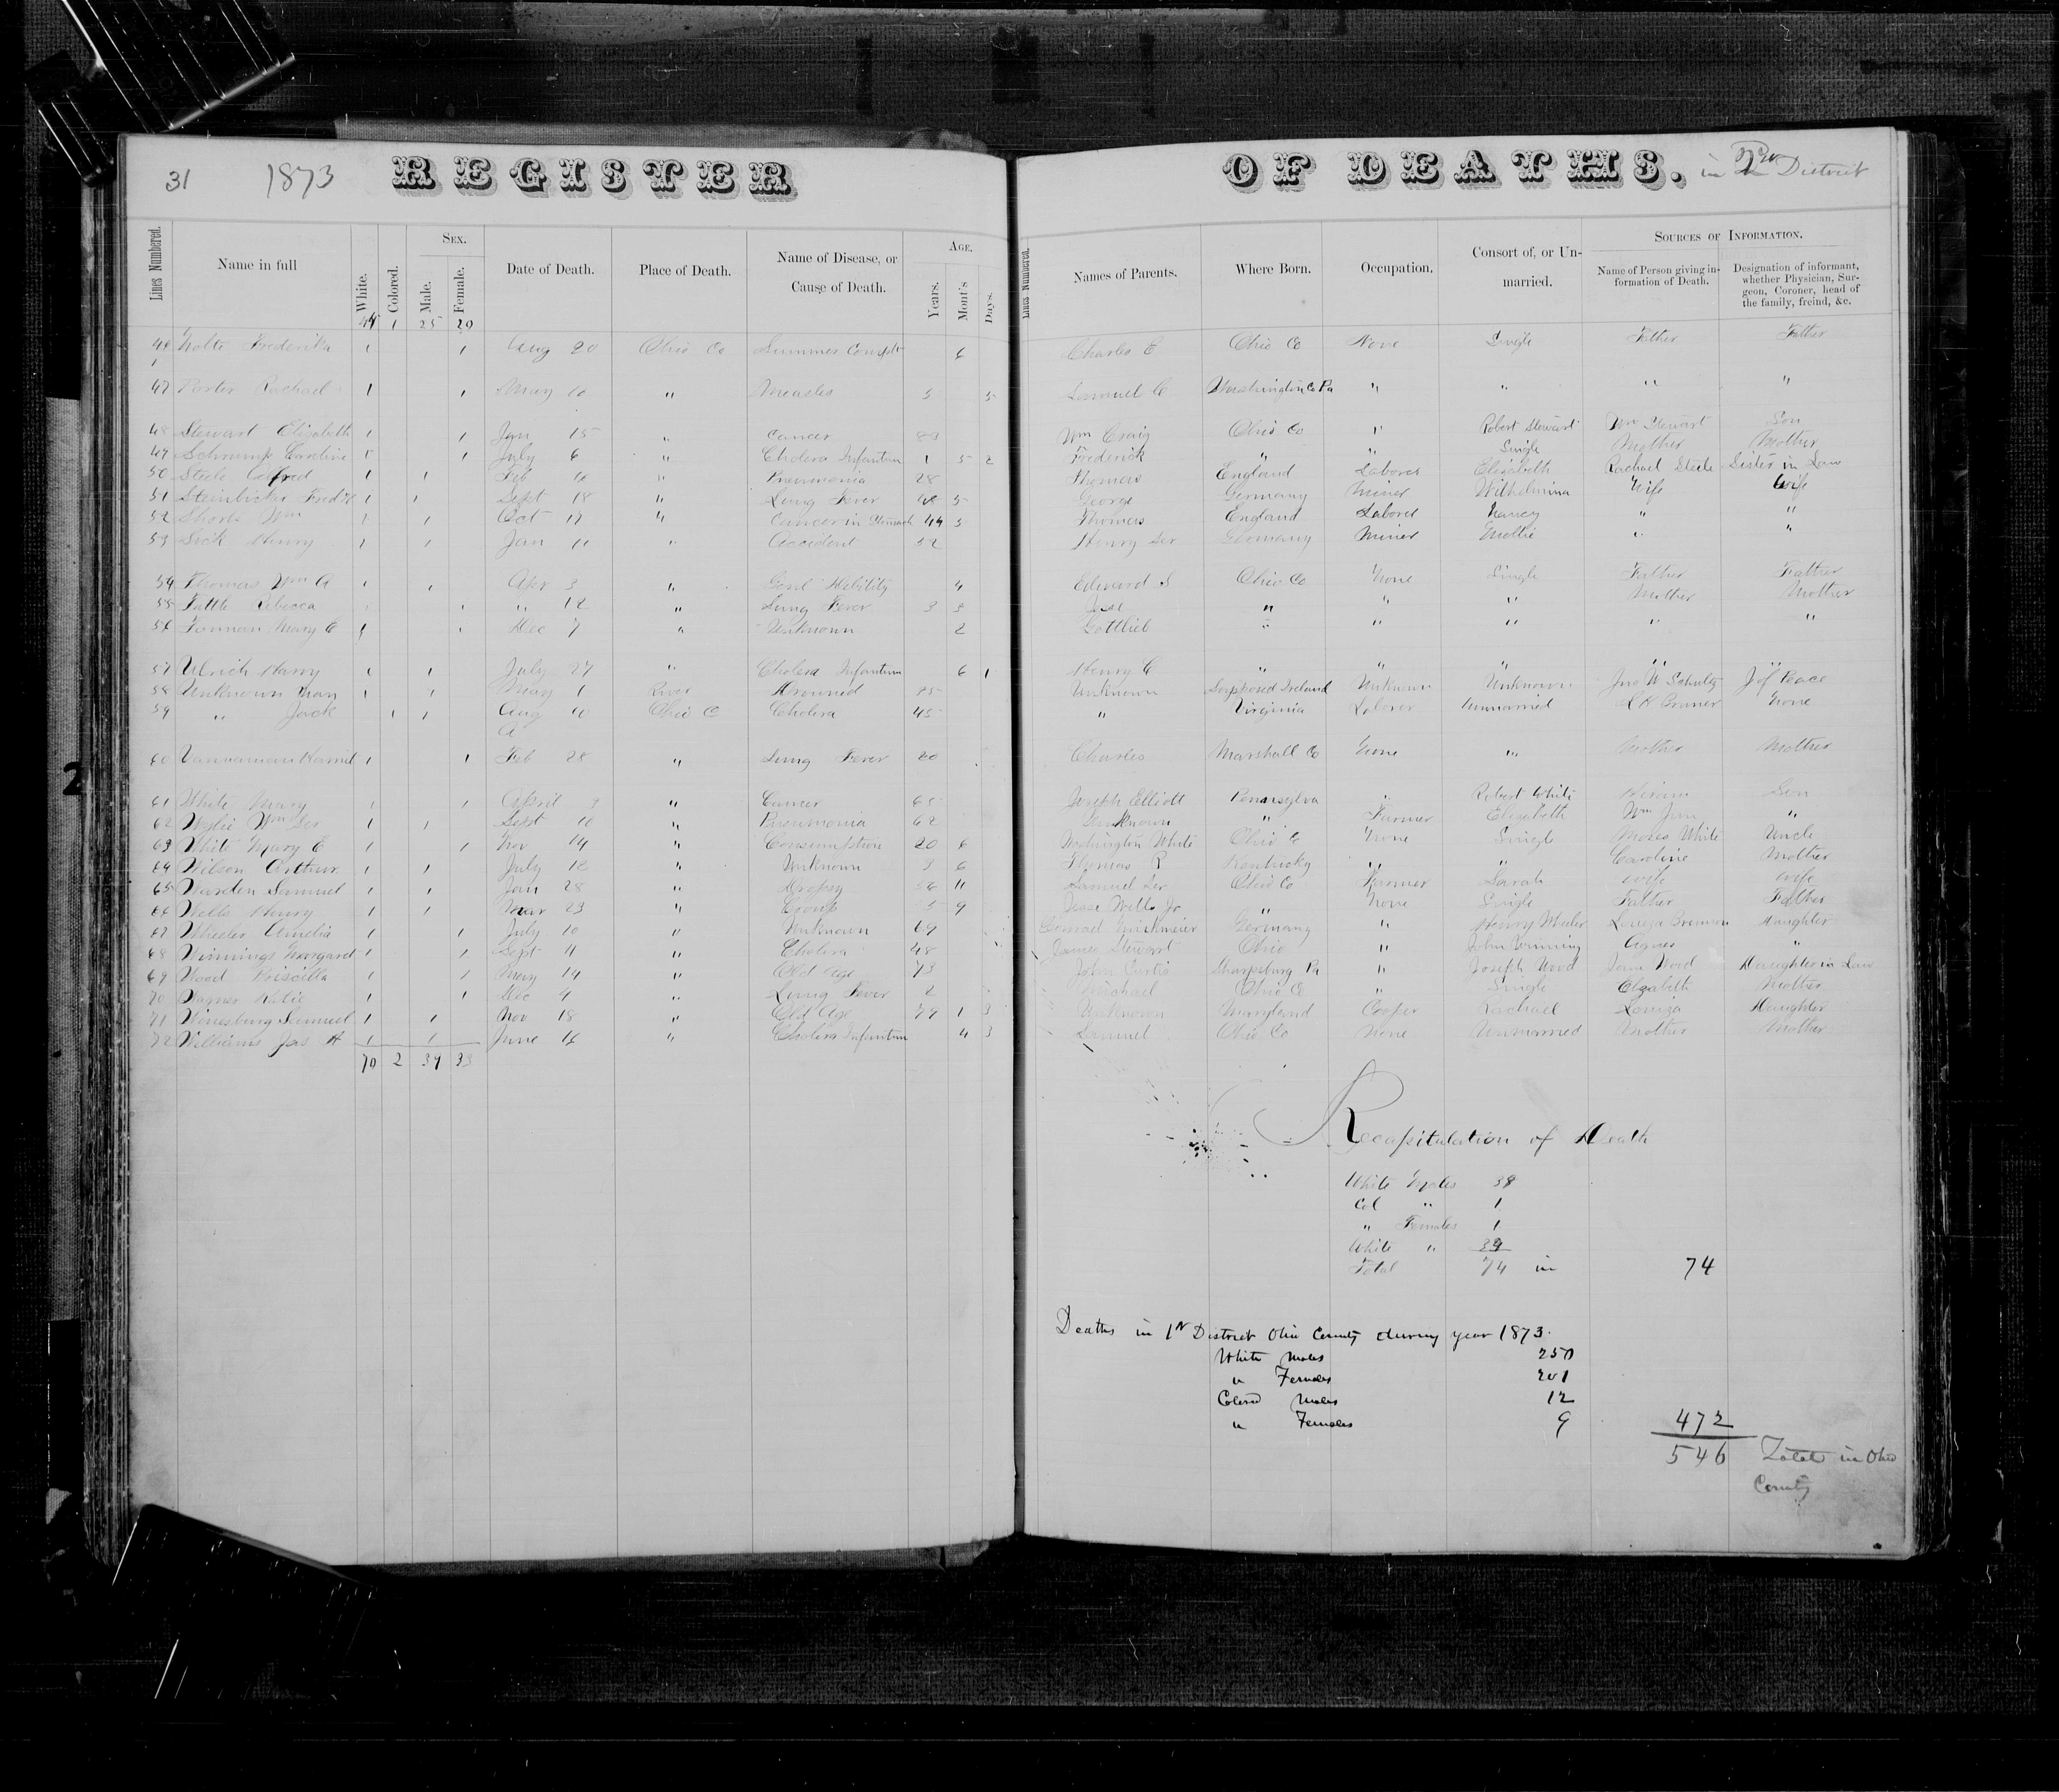 31 1873 REGISTER OF DEATHS. in 2nd District
Lines Numbered. Name in full White. Colored. Sex. Male. Female. Date of Death. Place of Death. Name of Disease, or Cause of Death. Age. Years. Mont's Days. Lines Numbered. Names of Parents. Where Born. Occupation. Consort of, or Unmarried. Sources of Information. Name of Person giving information of Death. Designation of informant, whether Physician, Surgeon, Coroner, head of the family, freind, &c.
44 1 25 20
46 Nolte Frederika 1 1 Aug 20 Ohio Co Summer Complt 6 Charles E Ohio Co None Single Father Father
47 Porter Rachael 1 1 May 10 " Measles 3 5 Samuel C Washington Co Pa " " " "
48 Stewart Elizabeth 1 1 Jan 15 " Cancer Wm Craig Ohio Co " Robert Stewart Wm Stewart Son
49 Schrump Caroline 1 1 July 6 " Cholera Infantum 1 5 2 Frederick " " Single Mother Mother
50 Steele Alfred 1 1 Feb " Pneumonia 28 Thomas England Laborer Elizabeth Rachael Steele Sister in Law
51 Fred'k 1 1 Sept 18 " Lung Fever 5 George Germany Miner Wilhelmina Wife Wife
52 Short Wm 1 1 Oct 19 " Cancer in Stomach 44 5 Thomas England Laborer Nancy " "
53 Sick Henry 1 1 Jan 11 " Accident 52 Henry Ser Germany Miner Mottie " "
54 Thomas Wm A 1 1 Apr 3 " Genl Debility 4 Edward S Ohio Co None Single Father Father
55 Tuttle Rebecca 1 1 " 12 " Lung Fever 3 3 " " " Mother Mother
56 Mary E 1 1 Dec 7 " Unknown 2 Gottlieb " " " " "
57 Ulrich Harry 1 1 July 27 " Cholera Infantum 6 1 Henry C " " " " "
58 Unknown Man 1 1 May 1 River Drowned 35 Unknown Supposed Ireland Unknown Unknown Jno W Schultz J of Peace
59 " Jack 1 1 Aug 10 Ohio C Cholera 45 " Virginia Laborer Unmarried None
60 1 1 Feb 28 " Lung Fever 20 Charles Marshall Co None " Mother Mother
61 White Mary 1 1 April 9 " Cancer 65 Joseph Elliott Pennsylva " Robert White Hiram Son
62 Wylie Wm Ser 1 1 Sept 10 " Pneumonia 62 Unknown " Farmer Elizabeth Wm Jun "
63 White Mary E 1 1 Nov 14 " Consumption 20 6 Washington White Ohio C None Single Moses White Uncle
64 Wilson Arthur 1 1 July 12 " Unknown 3 6 Thomas R Kentucky " " Caroline Mother
65 Warden Samuel 1 1 Jan 28 " Dropsy 56 11 Samuel Ser Ohio Co Farmer Sarah Wife Wife
66 Wells Henry 1 1 Mar 23 " Croup 5 9 Jesse Wells Jr " None Single Father Father
67 Wheeler Amelia 1 1 July 10 " Unknown 69 Germany " Henry Wheeler Louiza Daughter
68 Winnings Margaret 1 1 Sept 11 " Cholera 48 James Stewart Ohio " John Winning Agnes "
69 Wood Priscilla 1 1 May 14 " Old Age 73 John Curtis Sharpsburg Pa " Joseph Wood Jane Wood Daughter in Law
70 Wagner Katie 1 1 Dec 4 " Lung Fever 2 Michael Ohio C " Single Elzabeth Mother
71 Winesburg Samuel 1 1 Nov 18 " Old Age 79 1 3 Unknown Maryland Cooper Rachael Louiza Daughter
72 Williams Jas H 1 1 June 16 " Cholera Infantum 4 3 Samuel Ohio Co None Unmarried Mother Mother
70 2 39 33
Recapitulation of Death
White Males 38
Col " 1
" Females 1
White " 34
Total 74 in 74
Deaths in 1st District Ohio County during year 1873.
White Males 250
" Females 201
Colored Males 12
" Females 9 472
546 Total in Ohio
County